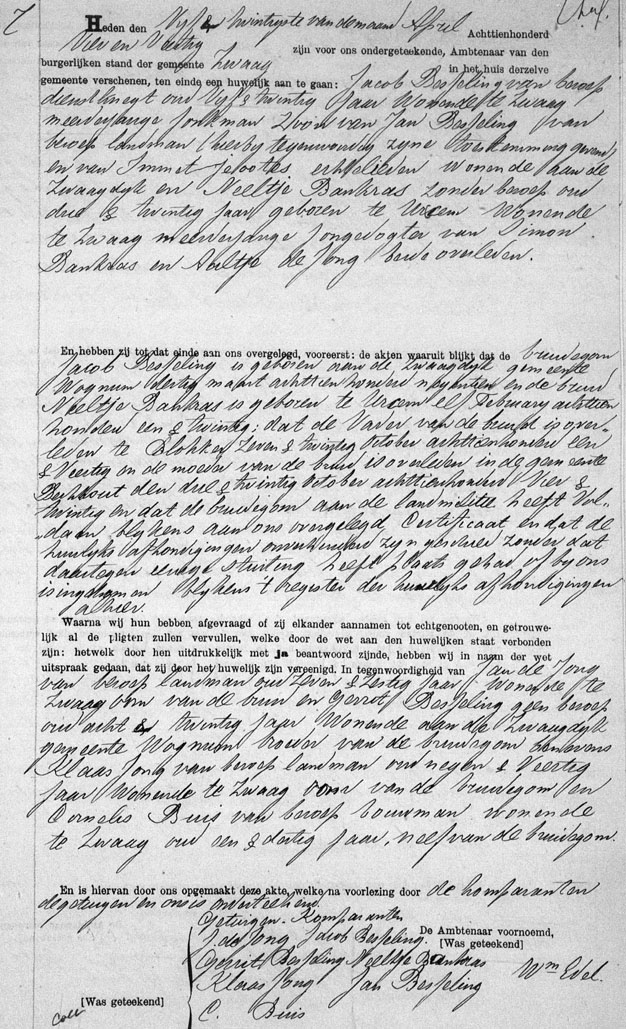 7
Heden den Vyf & twintigste van de maand April Achttienhonderd
Vier en Veertig zijn voor ons ondergeteekende, Ambtenaar van den
burgerlijken stand der gemeente Zwaag in het huis derzelve
gemeente verschenen, ten einde een huwelijk aan te gaan: Jacob Besseling van beroep
dienstknegt oud Vyf & twintig Jaar Wonende te Zwaag
meerderjarige Jonkman Zoon van Jan Besseling van
beroep landman (hierby tegenwoordig zyne toestemming gevend)
en van Immet echtelieden wonende aan de
Zwaagdyk en Neeltje Bankras zonder beroep oud
drie & twintig Jaar geboren te Urcem Wonende
te Zwaag meerderjarige Jongedogter van Simon
Bankras en Aaltje de Jong beide overleden.
En hebben zij tot dat einde aan ons overgelegd, vooreerst: de akten waaruit blijkt dat de bruidegom
Jacob Besseling is geboren aan de Zwaagdyk gemeente
Wognum dertig maart achttienhonderd negentien en de bruid
Neeltje Bankras is geboren te Urcem elf February achttien
honderd een & twintig: dat de Vader van de bruid is over-
leden te Blokker Zeven & twintig October achttienhonderd een
& Veertig en de moeder van de bruid is overleden in de gemeente
Berkhout den drie & twintig October achttienhonderd Vier &
twintig en dat de bruidegom aan de landmilitie heeft Vol-
daan blykens aan ons overgelegd Certificaat en dat de
huwlyks afkondigingen onverhinderd zyn geschied zonder dat
daartegen eenige stuiting heeft plaats gehad of by ons
is ingekomen blykens 't register der huwlyks afkondigingen
alhier.
Waarna wij hun hebben afgevraagd of zij elkander aannamen tot echtgenooten, en getrouwe-
lijk al de pligten zullen vervullen, welke door de wet aan den huwelijken staat verbonden
zijn: hetwelk door hen uitdrukkelijk met ja beantwoord zijnde, hebben wij in naam der wet
uitspraak gedaan, dat zij door het huwelijk zijn vereenigd. In tegenwoordigheid van Jan de Jong
van beroep landman oud Zeven & Zestig Jaar Wonende te
Zwaag oom van de bruid en Gerrit Besseling geen beroep
oud acht & twintig Jaar Wonende aan de Zwaagdyk
gemeente Wognum broeder van de bruidegom benevens
Klaas Jong van beroep landman oud negen & Veertig
Jaar Wonende te Zwaag oom van de bruidegom en
Cornelis Buis van beroep bouwman wonende
te Zwaag oud een & dertig Jaar, neef van de bruidegom.
En is hiervan door ons opgemaakt deze akte, welke na voorlezing door de komparanten
de getuigen en ons is onderteekend.
Getuigen. Komparanten
J. de Jong Jacob Besseling. De Ambtenaar voornoemd,
[Was geteekend]
Gerrit Besseling Neeltje Bankras
Klaas Jong Jan Besseling Wm Edel.
[Was geteekend]
C. Buis